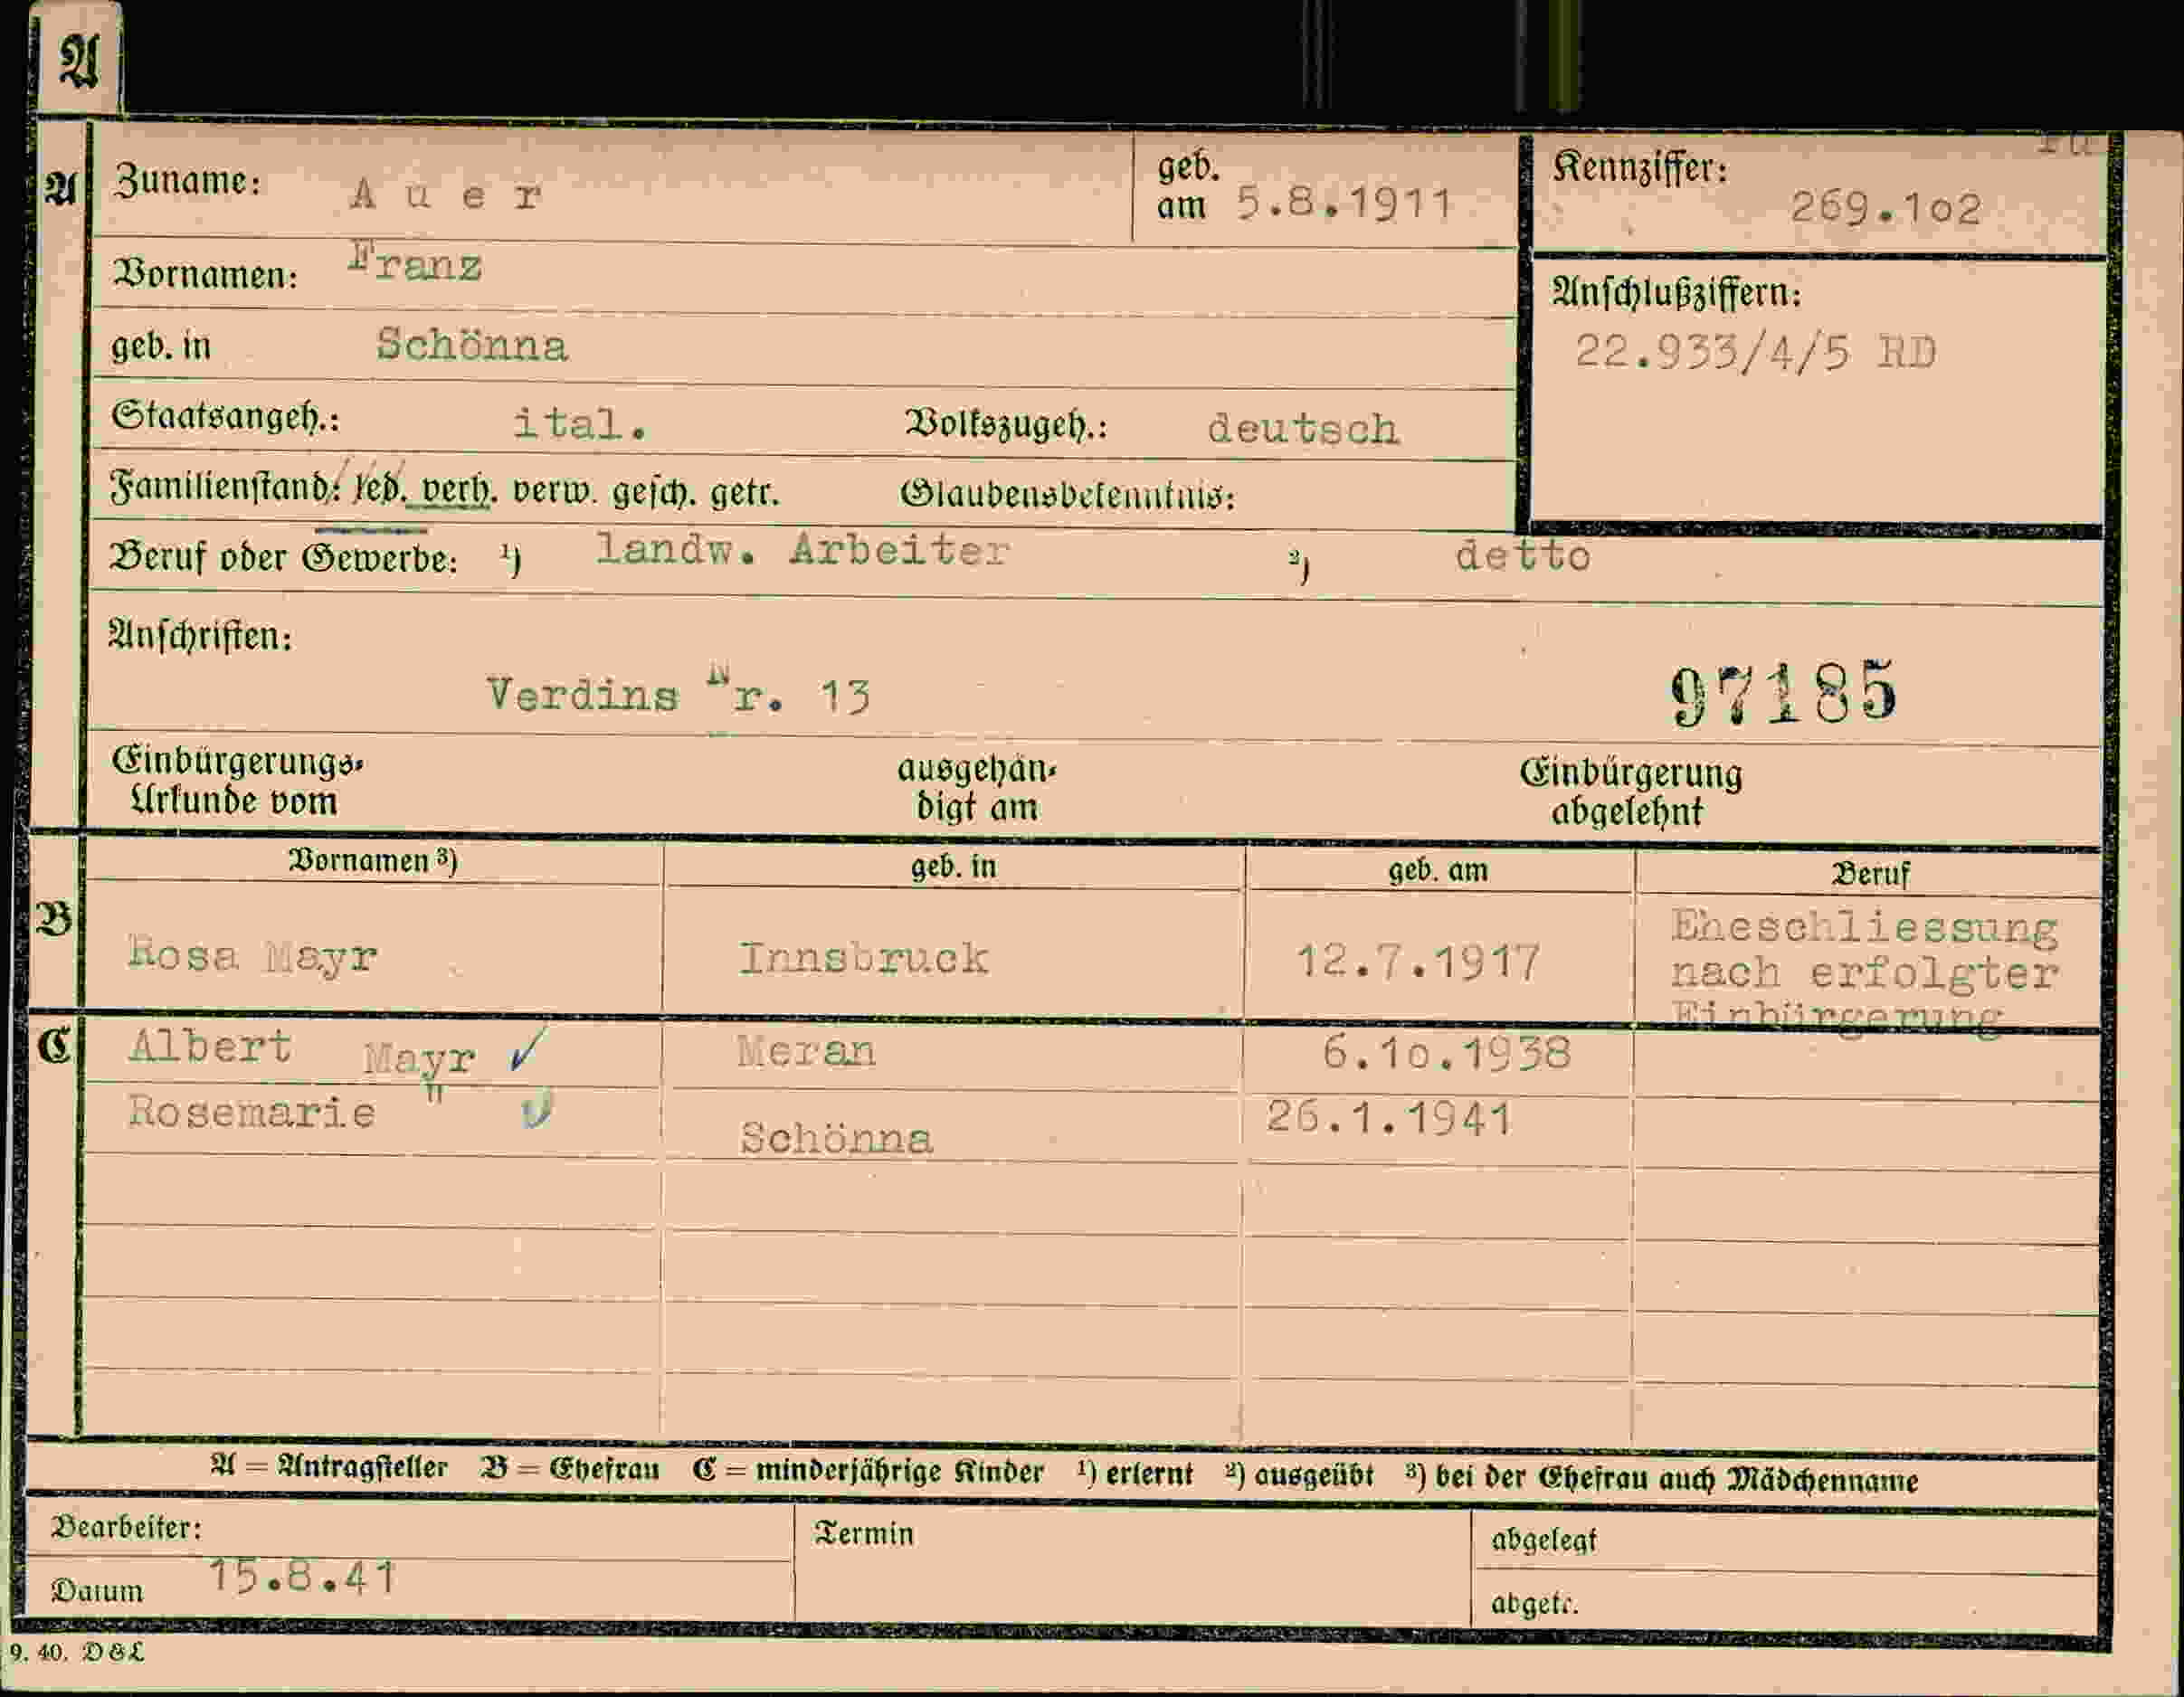 A
A Zuname: Auer geb. am 5.8.1911 Kennziffer: 269.1o2
Vornamen: Franz
Anschlußziffern:
geb. in Schönna 22.933/4/5 RD
Staatsangeh.: ital. Volkszugeh.: deutsch
Familienstand: led. verh. verw. gesch. getr. Glaubensbekenntnis:
Beruf oder Gewerbe: 1) landw. Arbeiter 2) detto
Anschriften:
Verdins Nr. 13 97185
Einbürgerungs-Urkunde vom ausgehändigt am Einbürgerung abgelehnt
Vornamen 3) geb. in geb. am Beruf
B Rosa Mayr Innsbruck 12.7.1917 Eheschliessung
nach erfolgter
Einbürgerung
C Albert Mayr ✓ Meran 6.1o.1938
Rosemarie " ✓ Schönna 26.1.1941
A = Antragsteller B = Ehefrau C = minderjährige Kinder 1) erlernt 2) ausgeübt 3) bei der Ehefrau auch Mädchenname
Bearbeiter: Termin abgelegt
Datum 15.8.41 abgetr.
9. 40. D&L